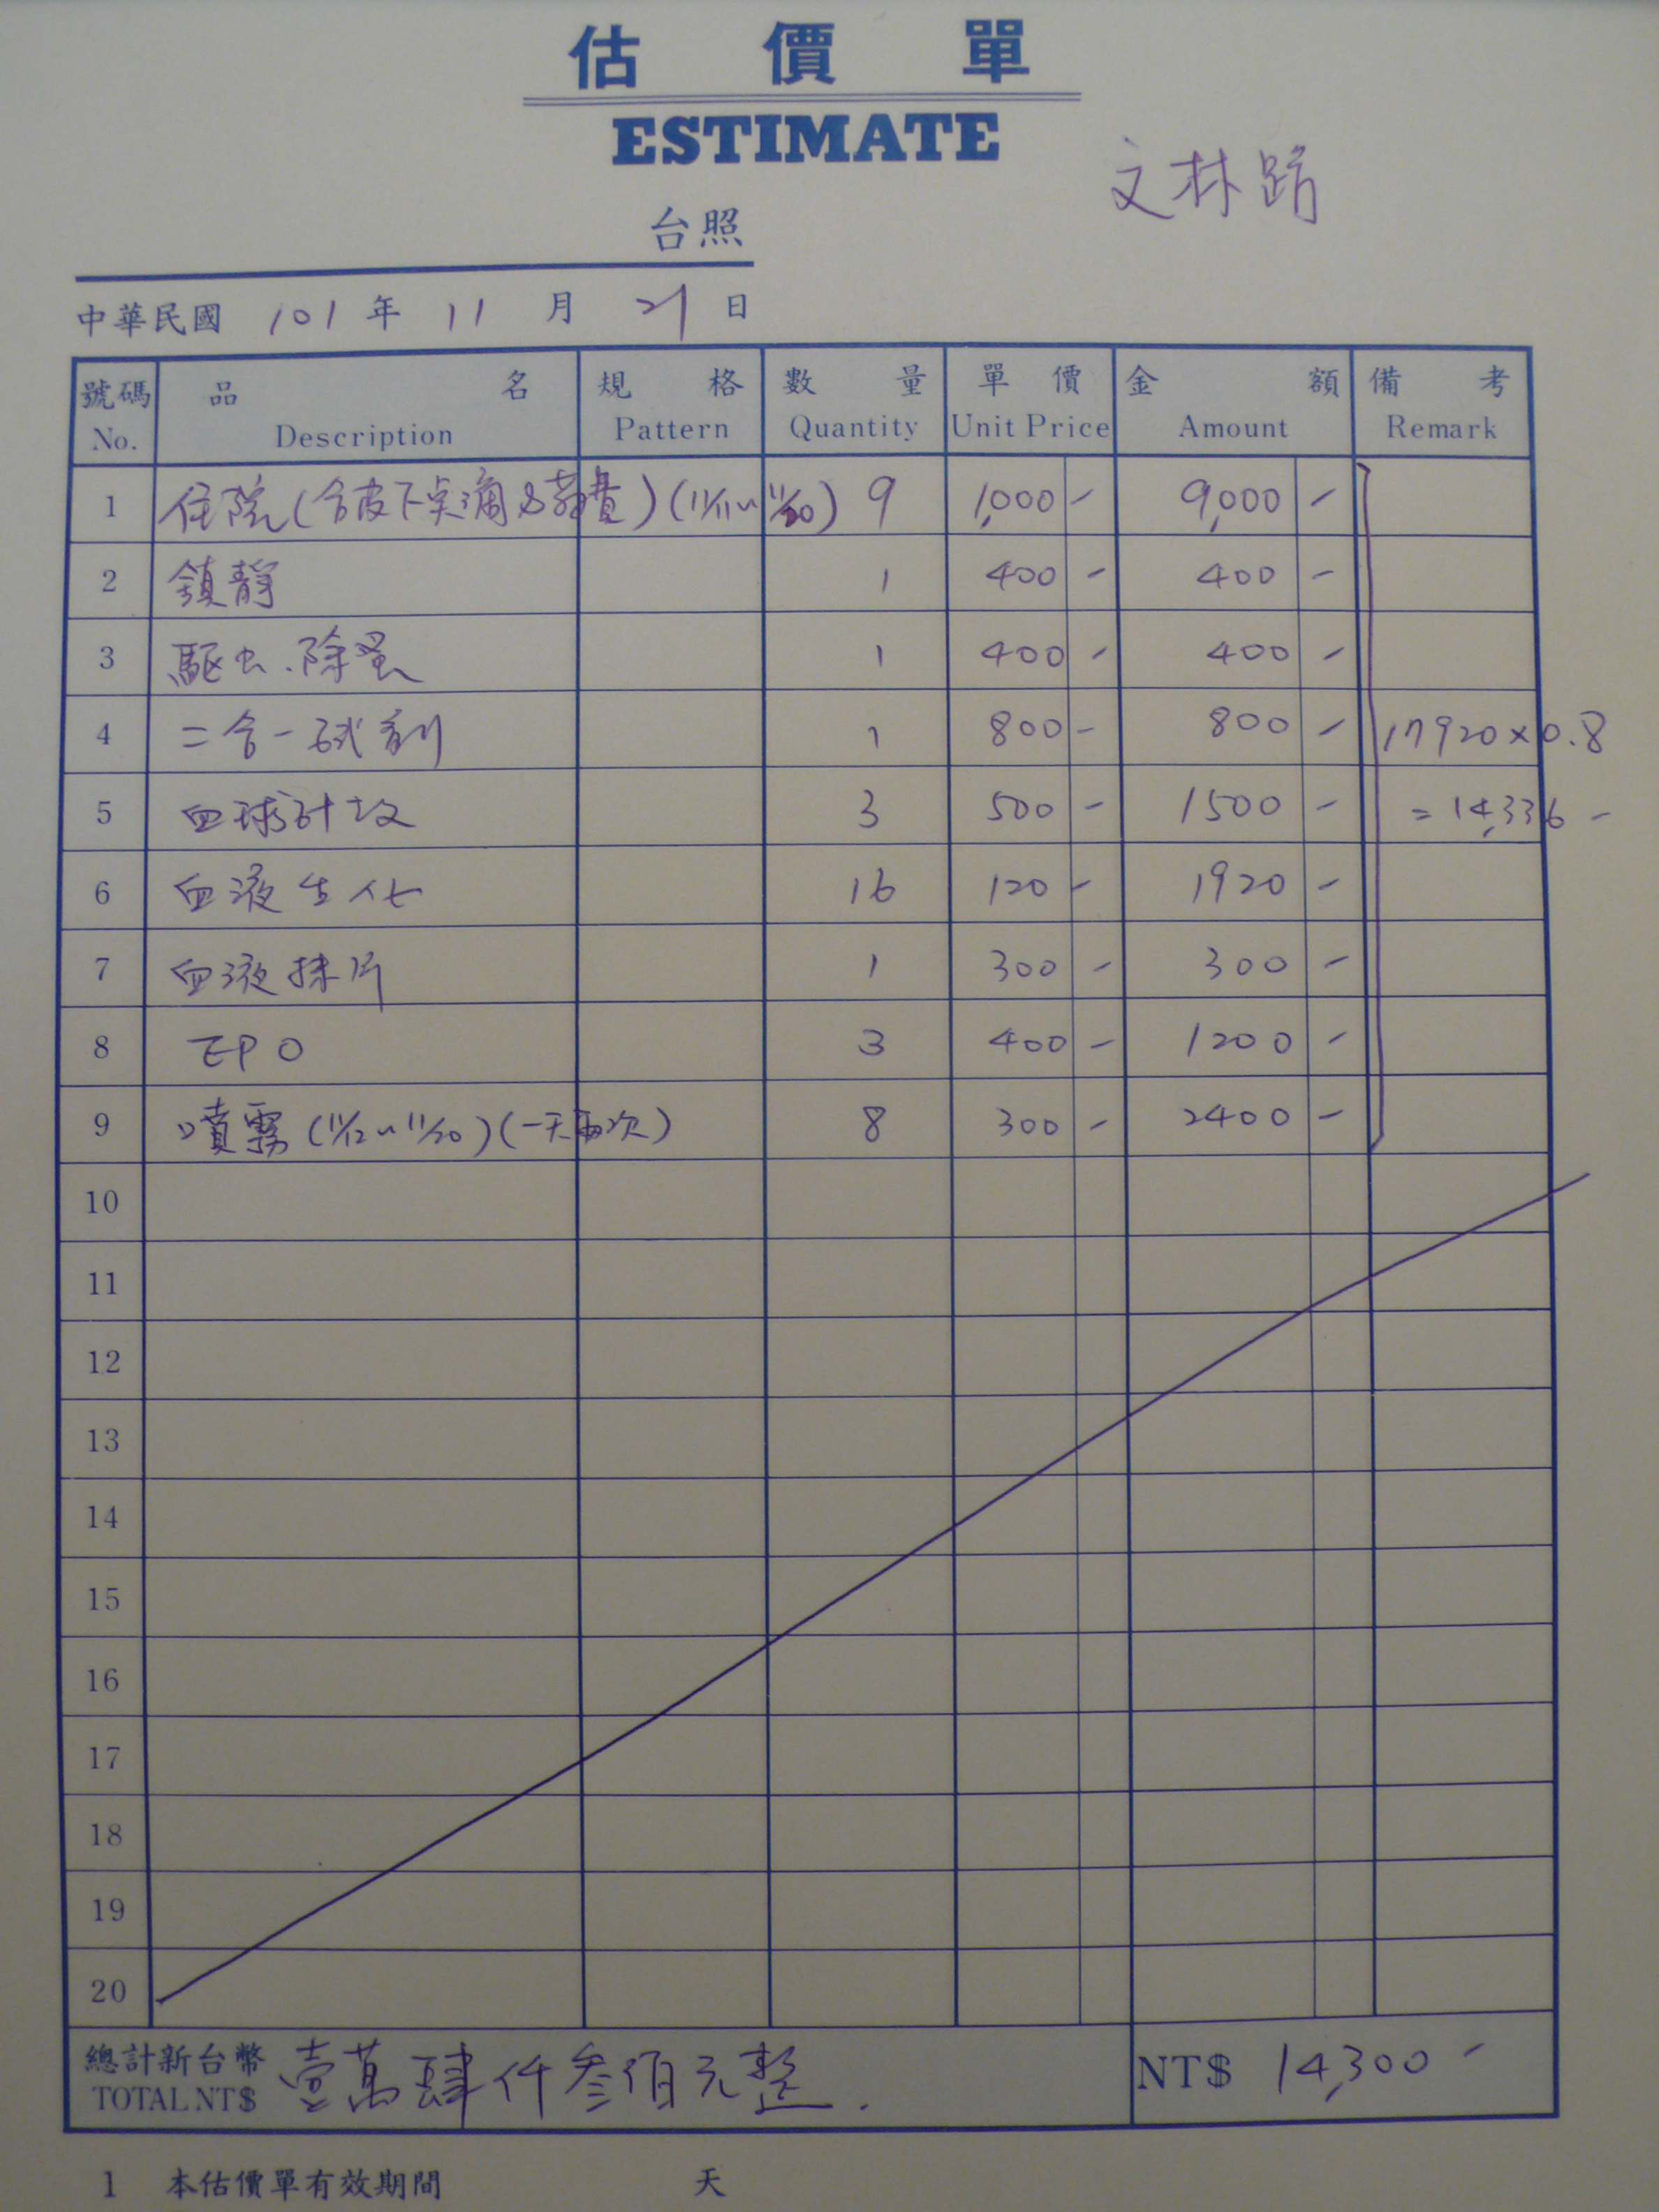 估價單
ESTIMATE
文林
台照
中華民國 101 年 11 月 21 日
號碼 品名 規格 數量 單價 金額 備考
No. Description Pattern Quantity Unit Price Amount Remark
1 住院(含皮下点滴&葯費)(11/11~11/20) 9 1,000 - 9,000 -
2 鎮靜 1 400 - 400 -
3 驅虫.除蚤 1 400 - 400 -
4 二合一試劑 1 800 - 800 - 17920×0.8
5 血球計数 3 500 - 1500 - =14,336 -
6 血液生化 16 120 - 1920 -
7 血液抹片 1 300 - 300 -
8 EPO 3 400 - 1200 -
9 噴霧(11/12~11/20)(一天兩次) 8 300 - 2400 -
10
11
12
13
14
15
16
17
18
19
20
總計新台幣 壹萬肆仟叁佰元整. NT$ 14,300 -
TOTAL NT$
1 本估價單有效期間 天